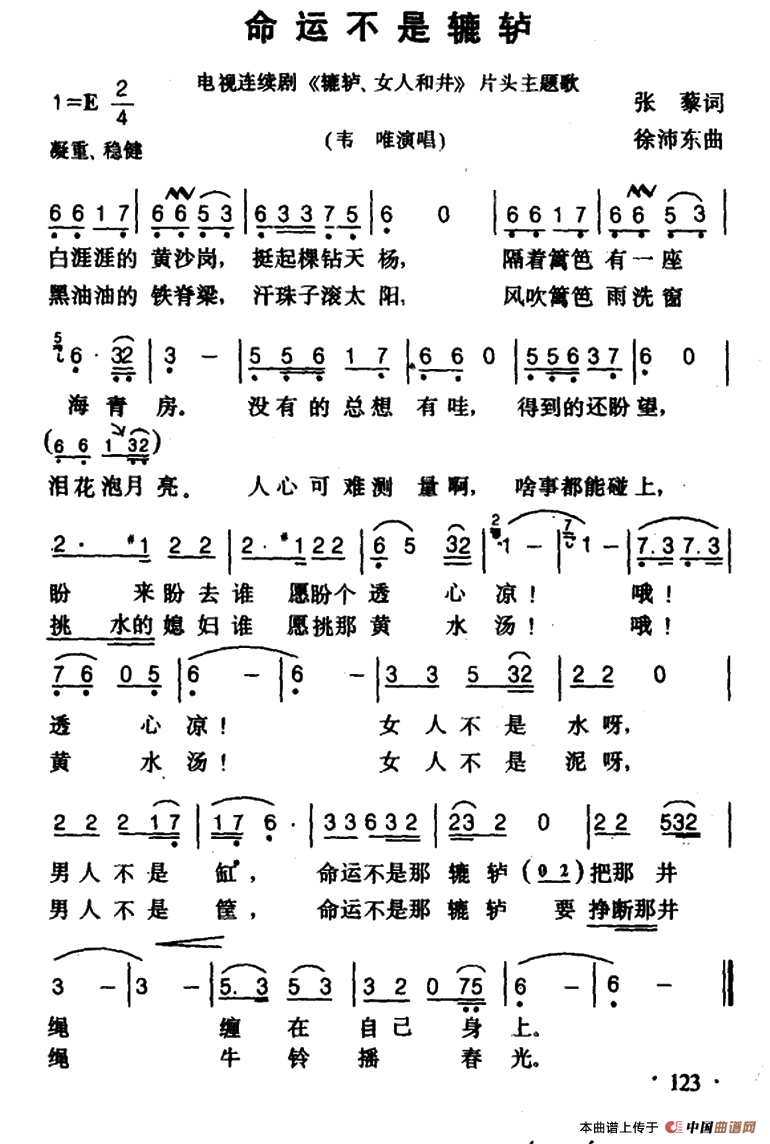 命运不是辘轳
电视连续剧《辘轳、女人和井》片头主题歌
1=E 2/4
张 藜词
凝重、稳健
(韦 唯演唱)
徐沛东曲
6 6 1 7 | 6 6 5 3 | 6 3 3 7 5 | 6 0 | 6 6 1 7 | 6 6 5 3 |
白涯涯的 黄沙岗, 挺起棵钻天 杨, 隔着篱笆 有一座
黑油油的 铁脊梁, 汗珠子滚太 阳, 风吹篱笆 雨洗窗
5 6 · 32 | 3 – | 5 5 6 1 7 | 6 6 0 | 5 5 6 3 7 | 6 0 |
海 青 房。 没有的总想 有哇, 得到的还盼望,
(6 6 1 32)
泪花泡月 亮。 人心可难测 量啊, 啥事都能碰上,
2 · #1 2 2 | 2 · #1 2 2 | 6 5 32 | 2 1 – | 7 1 – | 7.3 7.3 |
盼 来盼去谁 愿盼个 透 心 凉! 哦!
挑 水的媳妇谁 愿挑那 黄 水 汤! 哦!
7 6 0 5 | 6 – | 6 – | 3 3 5 32 | 2 2 0 |
透 心 凉! 女 人 不 是 水 呀,
黄 水 汤! 女 人 不 是 泥 呀,
2 2 2 1 7 | 1 7 6 · | 3 3 6 3 2 | 23 2 0 | 2 2 532 |
男 人 不 是 缸, 命运不是那 辘 轳 (0 2) 把那 井
男 人 不 是 筐, 命运不是那 辘 轳 要 挣断那井
3 – | 3 – | 5. 3 5 3 | 3 2 0 75 | 6 – | 6 – ‖
绳 缠 在 自 己 身 上。
绳 牛 铃 摇 春 光。
· 123 ·
本曲谱上传于 中国曲谱网